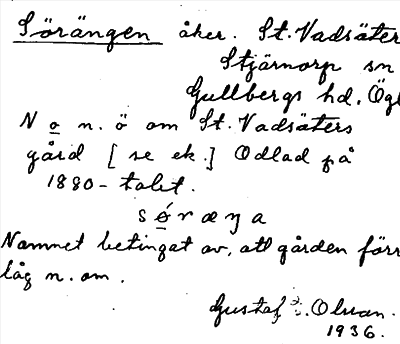 Sörängen åker. St. Vadsäter
Stjärnorp sn
Gullbergs hd. Ögl
N o n. ö om St. Vadsäters
gård [se ek.] Odlad på
1880-talet.
Namnet betingat av, att gården förr
låg n. om.
Gustaf Olsson.
1936.